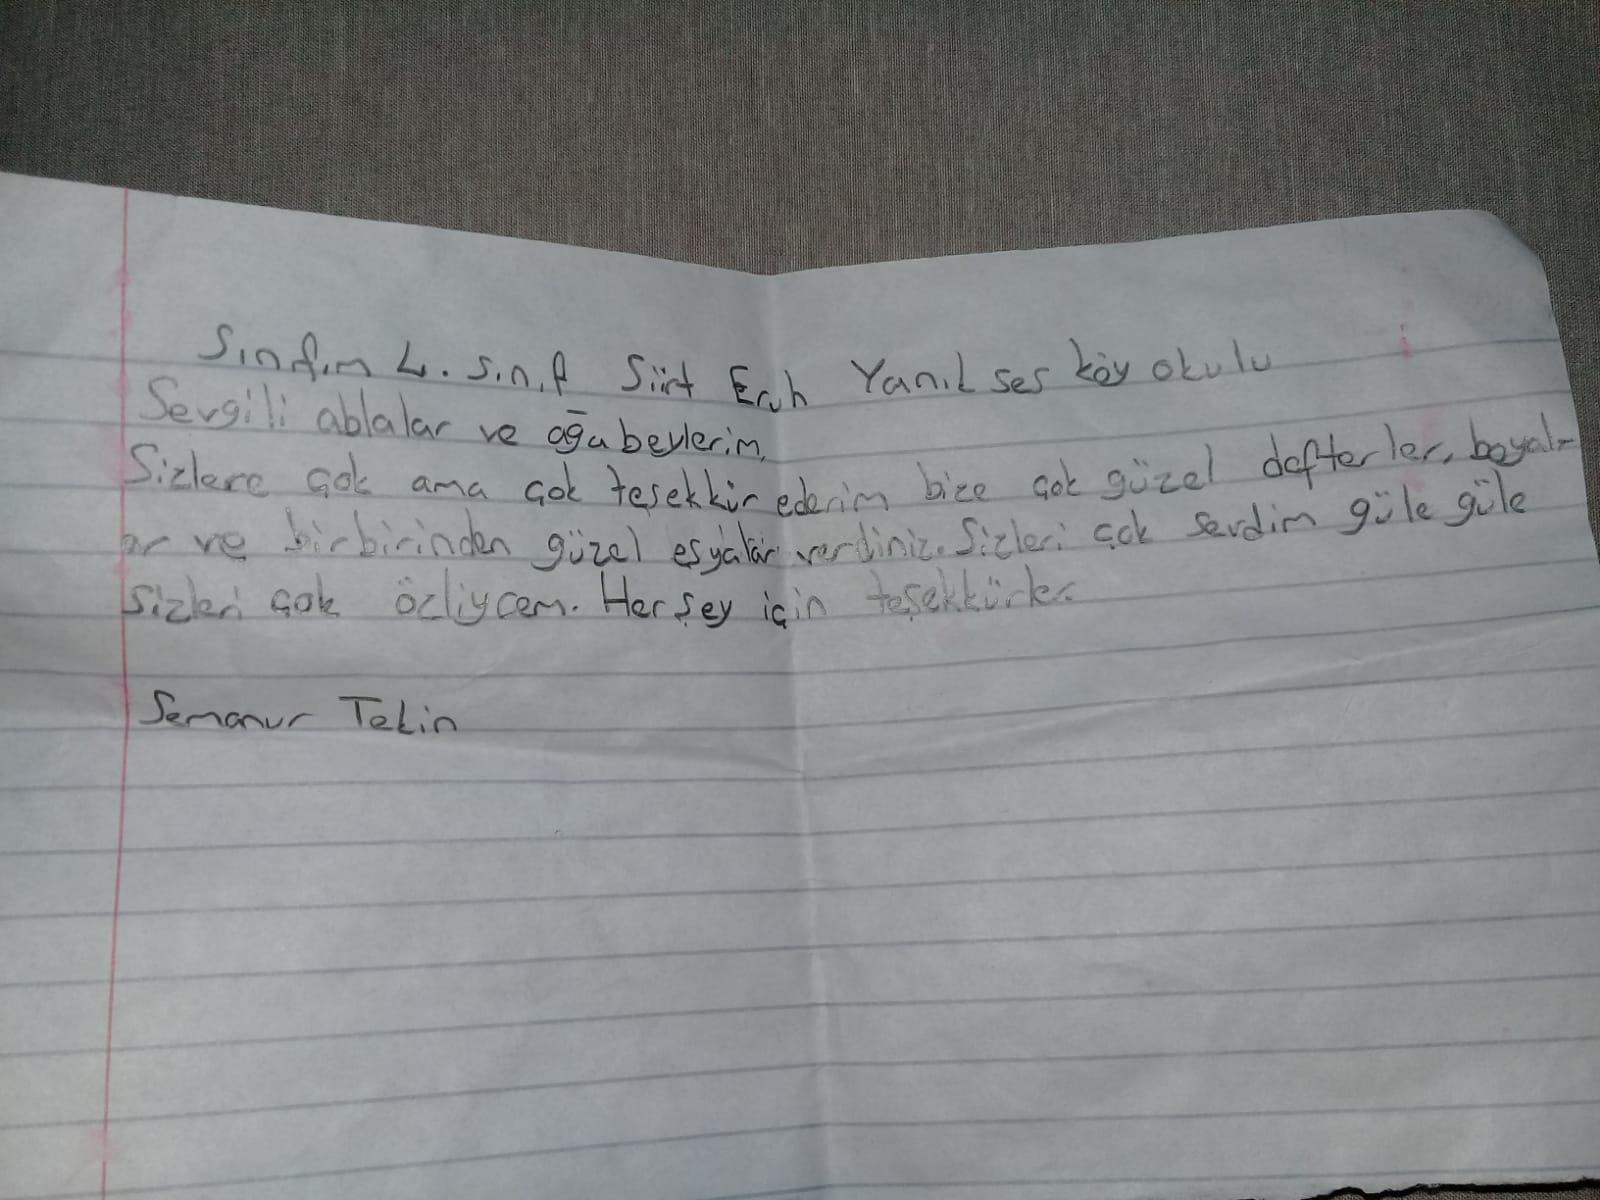 Sınıfım 4. Sınıf Siirt Eruh Yanık ses köy okulu
Sevgili ablalar ve ağabeylerim,
Sizlere çok ama çok teşekkür ederim bize çok güzel defterler, boyal-
ar ve birbirinden güzel eşyalar verdiniz. Sizleri çok sevdim güle güle
Sizleri çok özliycem. Her şey için teşekkürler
Semanur Tekin